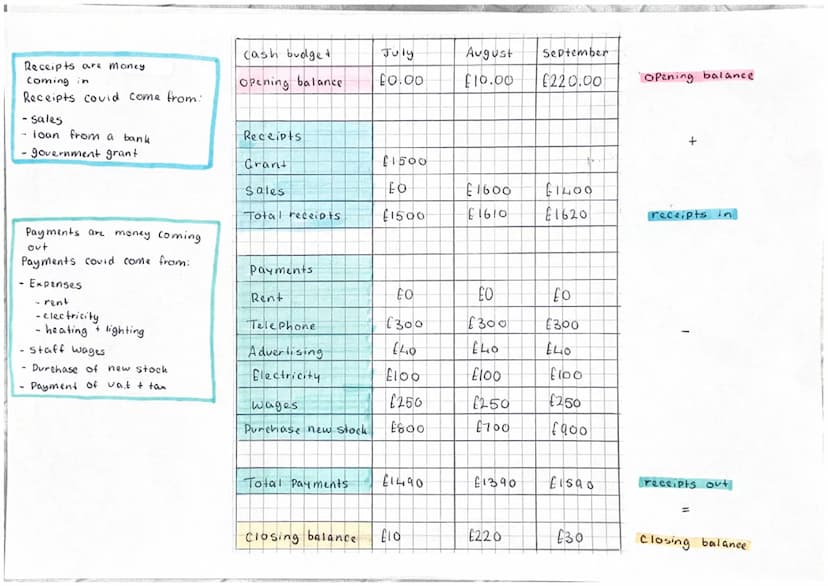 Receipts are money
coming in
Receipts could come from:
- sales
- loan from a bank
- government grant
Payments are money coming
out
Payments could come from:
- Expenses
- rent
- electricity
- heating + lighting
- Staff wages
- Purchase of new stock
- Payment of vat + tax
cash budget July August September
opening balance £0.00 £10.00 £220.00
Receipts
Grant £1500
Sales £0 £1600 £1400
Total receipts £1500 £1610 £1620
Payments
Rent £0 £0 £0
Telephone £300 £300 £300
Advertising £40 £40 £40
Electricity £100 £100 £100
Wages £250 £250 £250
Purchase new stock £800 £700 £900
Total Payments £1490 £1390 £1590
Closing balance £10 £220 £30
opening balance
+
receipts in
-
receipts out
=
closing balance